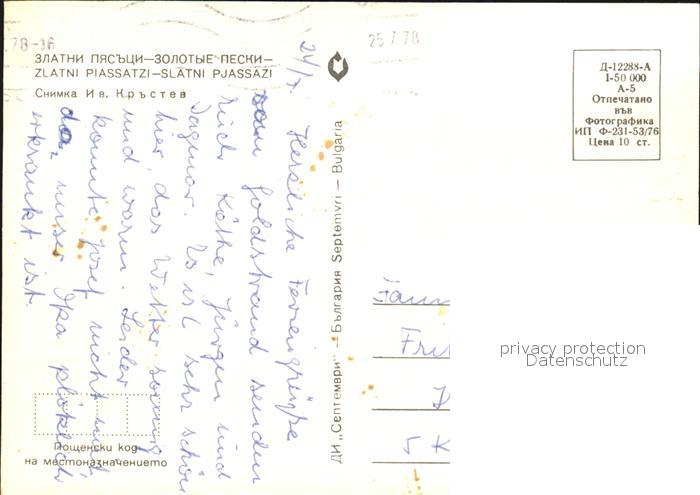 78-16
25.7.78
ЗЛАТНИ ПЯСЪЦИ—ЗОЛОТЫЕ ПЕСКИ—
ZLATNI PIASSATZI—SLATNI PJASSAZI
Снимка Ив. Кръстев
24/7.
Herzliche Feriengrüße
vom Goldstrand senden
Euch Käthe, Jürgen und
Dagmar. Es ist sehr schön
hier, das Wetter sonnig
und warm. Leider
konnte Josef nicht mit,
da unser Opa plötzlich
erkrankt ist.
Пощенски код
на местоназначението
ДИ „Септември" — България Septemvri — Bulgaria
Д-12288-А
1-50 000
А-5
Отпечатано
във
Фотографика
ИП Ф-231-53/76
Цена 10 ст.
Fam
Fri
5 K
privacy protection
Datenschutz